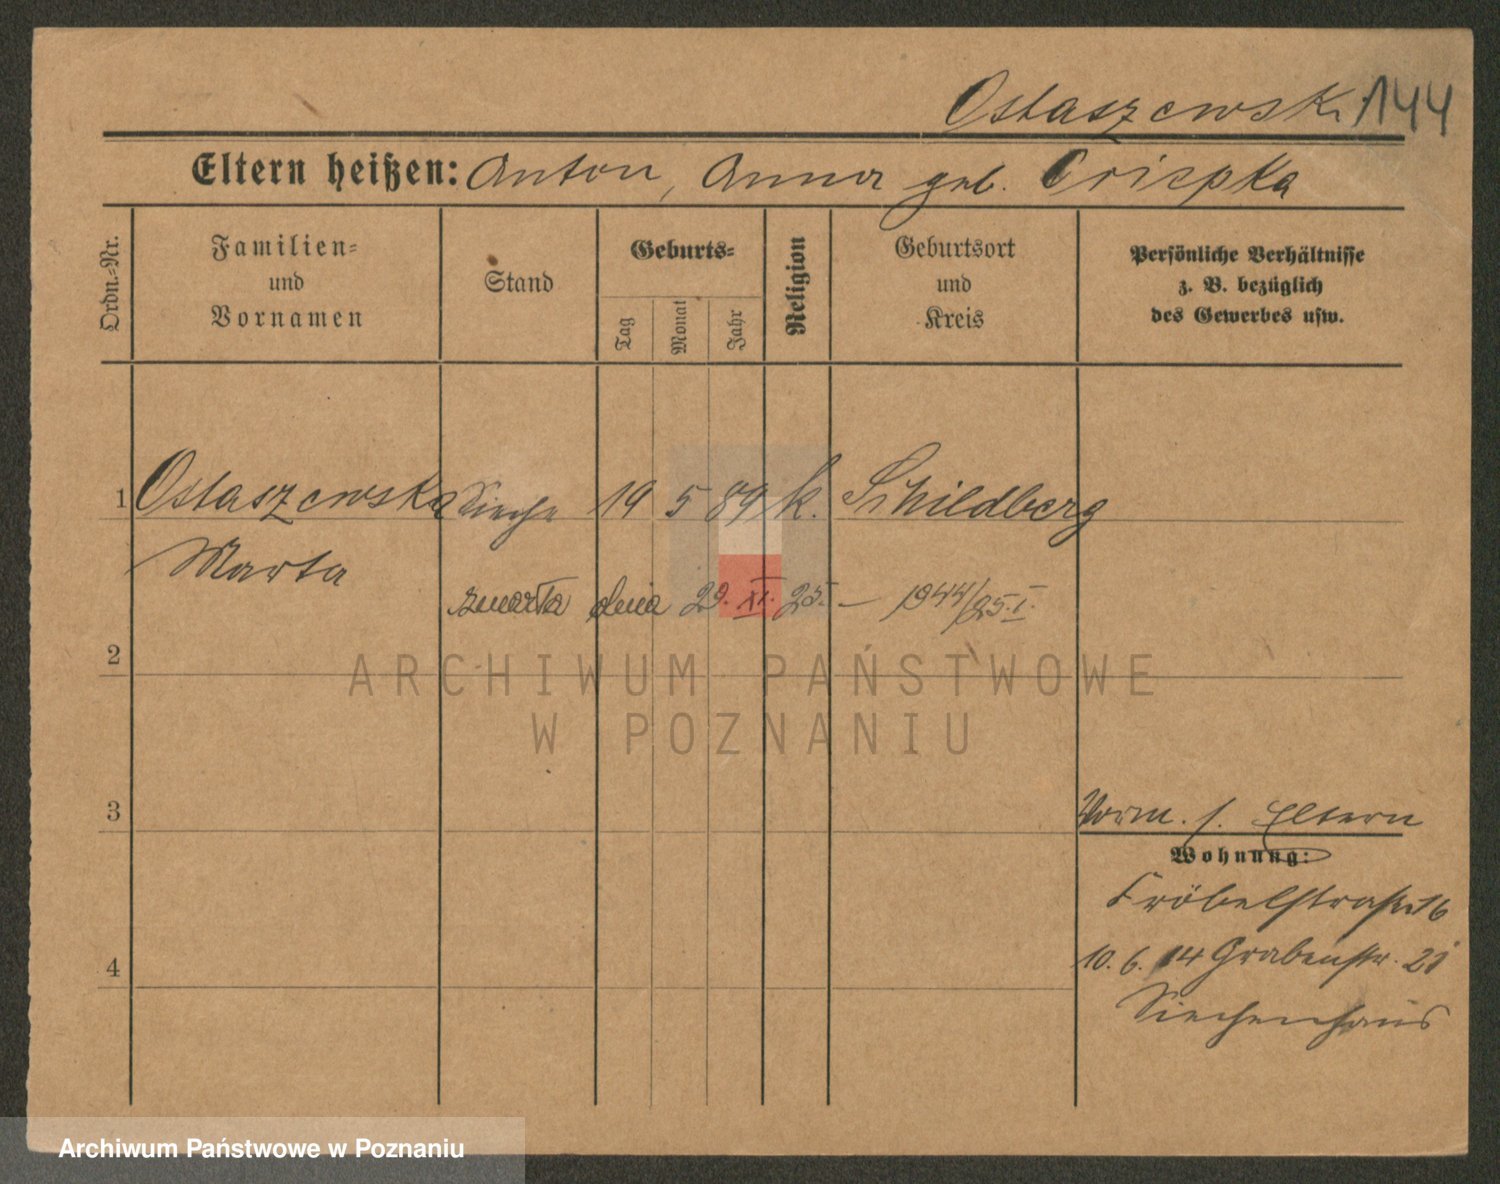 Ostaszewski 144
Eltern heißen: Anton, Anna geb. Crispka
Ordn.-Nr.
Familien-
und
Vornamen
Stand
Geburts-
Tag
Monat
Jahr
Religion
Geburtsort
und
Kreis
Persönliche Verhältnisse
z. B. bezüglich
des Gewerbes usw.
1 Ostaszewska Sieche 19 5 89 k. Schildberg
Marta
zmarła dnia 29. XI. 25. – 1944/25. I.
2
ARCHIWUM PAŃSTWOWE
W POZNANIU
3
Vorm. s. Eltern
Wohnung:
Fröbelstraße 16
4
10. 6. 14 Grabenstr. 21
Siechenhaus
Archiwum Państwowe w Poznaniu